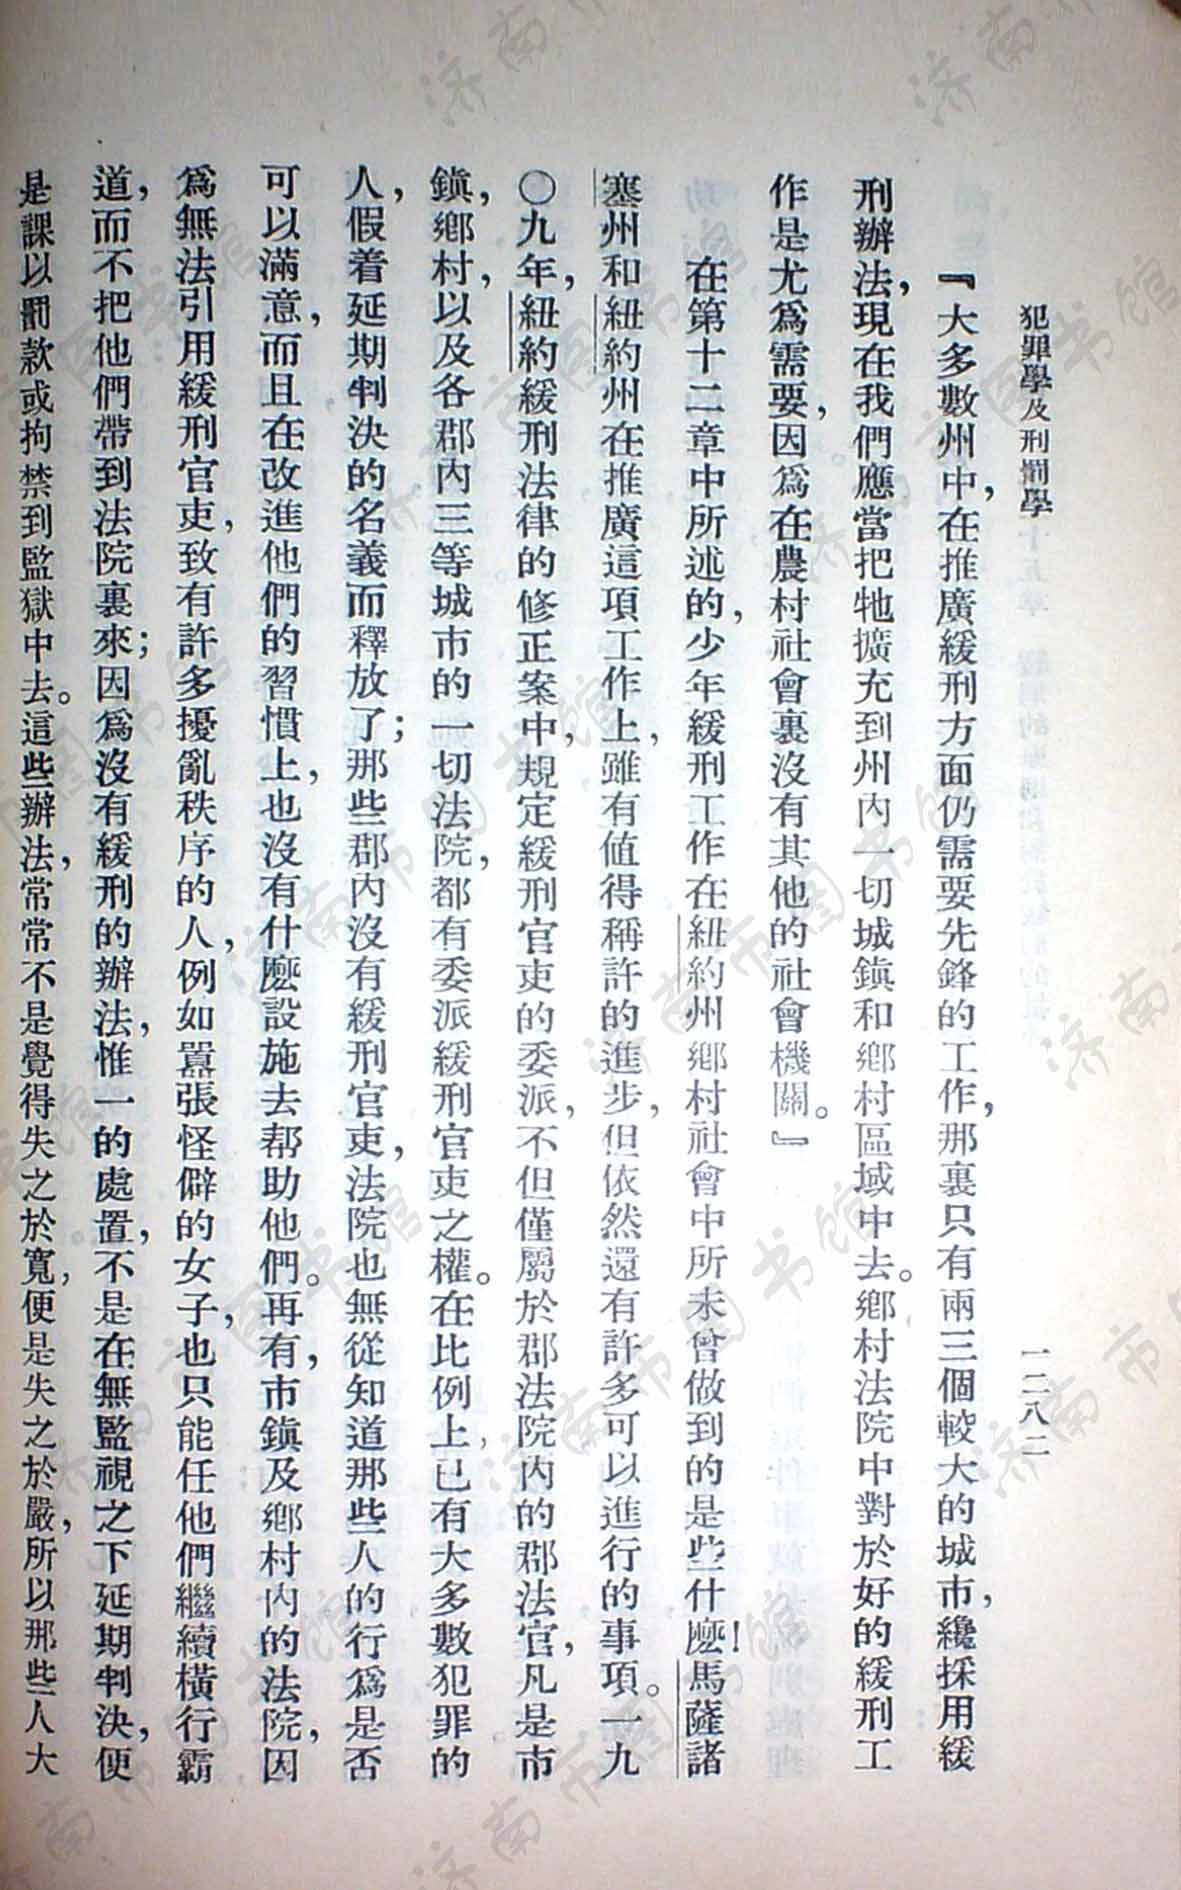 犯罪學及刑罰學
一二八二
『大多數州中，在推廣緩刑方面仍需要先鋒的工作，那裏只有兩三個較大的城市，纔採用緩
刑辦法，現在我們應當把牠擴充到州內一切城鎮和鄉村區域中去。鄉村法院中對於好的緩刑工
作是尤爲需要，因爲在農村社會裏沒有其他的社會機關。』
在第十二章中所述的，少年緩刑工作在紐約州鄉村社會中所未曾做到的是些什麼！馬薩諸
塞州和紐約州在推廣這項工作上，雖有值得稱許的進步，但依然還有許多可以進行的事項。一九
〇九年，紐約緩刑法律的修正案中，規定緩刑官吏的委派，不但僅屬於郡法院內的郡法官，凡是市
鎮，鄉村，以及各郡內三等城市的一切法院，都有委派緩刑官吏之權。在比例上，已有大多數犯罪的
人，假着延期判決的名義而釋放了；那些郡內沒有緩刑官吏，法院也無從知道那些人的行爲是否
可以滿意，而且在改進他們的習慣上，也沒有什麼設施去帮助他們。再有，市鎮及鄉村內的法院，因
爲無法引用緩刑官吏，致有許多擾亂秩序的人，例如囂張怪僻的女子，也只能任他們繼續橫行霸
道，而不把他們帶到法院裏來；因爲沒有緩刑的辦法，惟一的處置，不是在無監視之下延期判決，便
是課以罰款或拘禁到監獄中去。這些辦法，常常不是覺得失之於寬，便是失之於嚴，所以那些人大
济南市图书馆
济南市图书馆
济南市图书馆